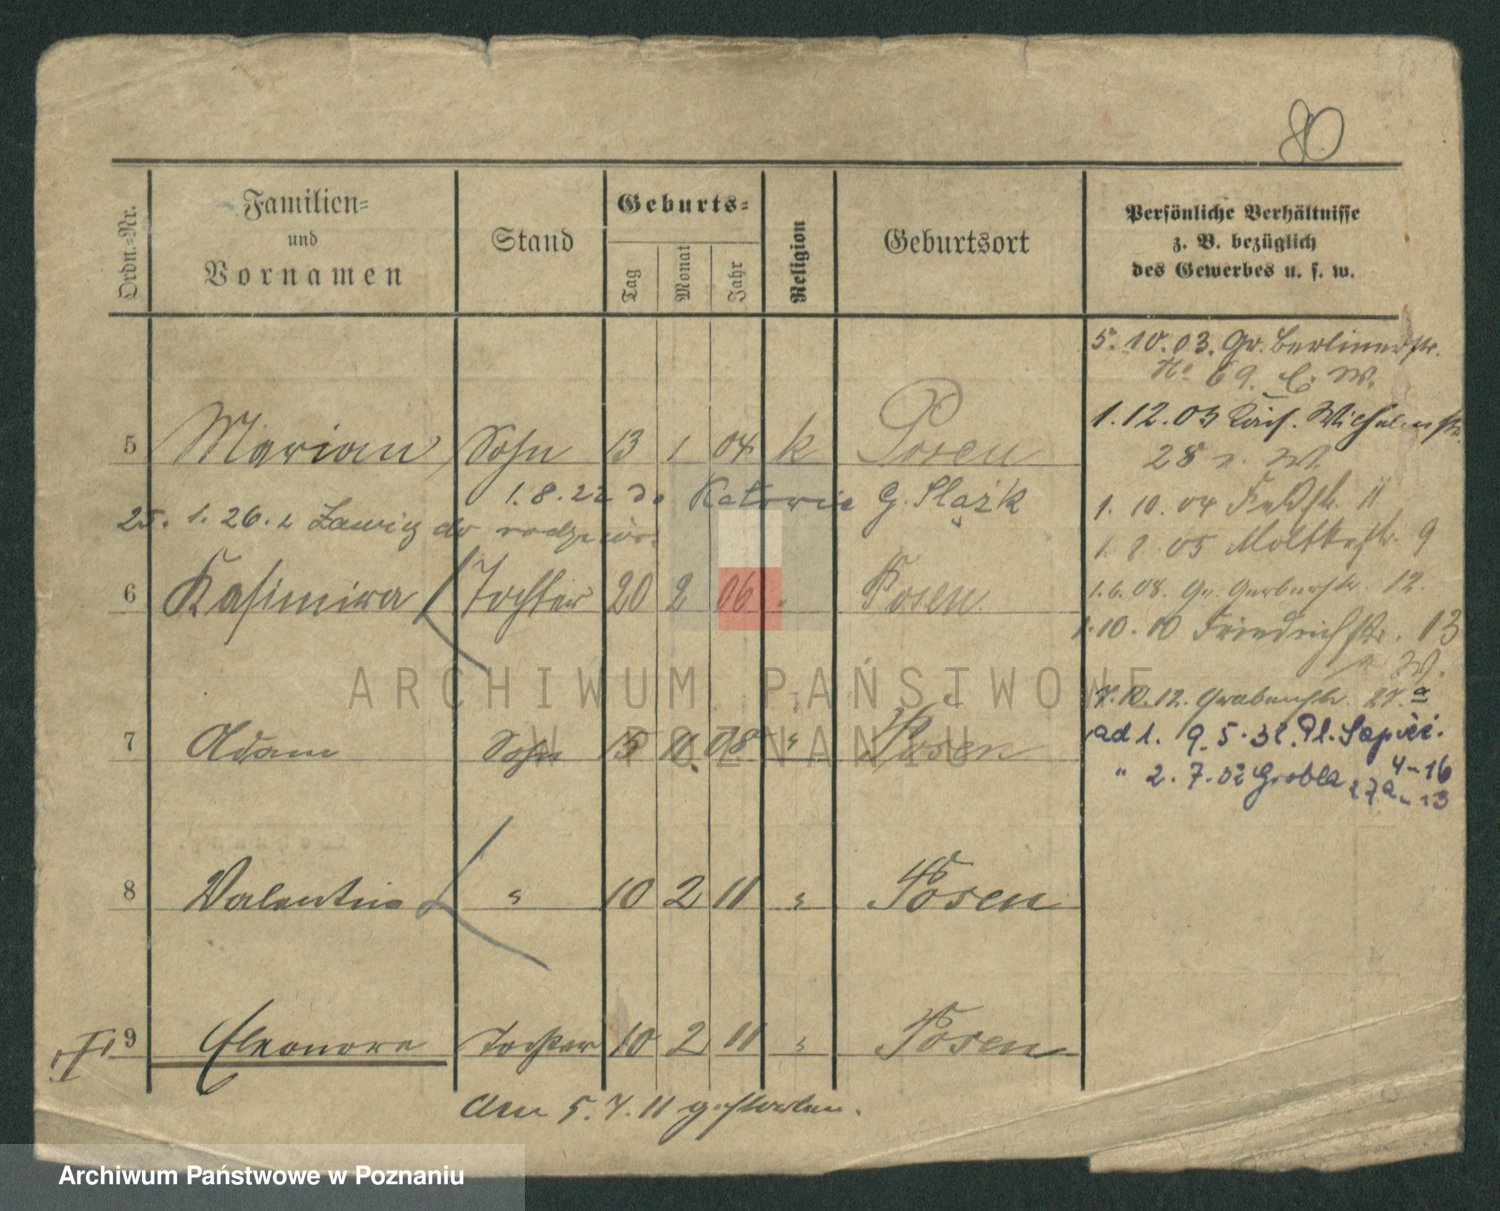 80
Ordn.-Nr.
Familien-
und
Vornamen
Stand
Geburts-
Tag
Monat
Jahr
Religion
Geburtsort
Persönliche Verhältnisse
z. B. bezüglich
des Gewerbes u. s. w.
5. 10. 03. Gr. Berlinerstr.
No 69.
5 Marian Sohn 13 1 04 k Posen
1. 12. 03 Kais. Wilhelmstr.
28
1. 8. 22 do Katowic G. Slązk
1. 10. 04 Feldstr. 11
25. 1. 26. z Ławicy do rodziców.
05 Moltkestr. 9
6 Kasimira Tochter 20 2 06 " Posen
1. 6. 08. Gr. Gerberstr. 12.
1. 10. 10 Friedrichstr. 13
12. Grabenstr. 27. a
7 Adam Sohn 15 11 08 " Posen
ad 1. 9. 5. 32. Pl. Sapież.
4-16
" 2. 7. 32 Grobla 27a - 13
8 Valentin " 10 2 11 " Posen
9 Eleonore Tochter 10 2 11 " Posen
Am 5. 7. 11 gestorben.
ARCHIWUM PAŃSTWOWE
W POZNANIU
Archiwum Państwowe w Poznaniu